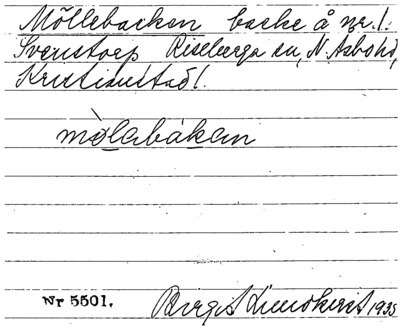 Möllebacken backe å nr. 1.
Svenstorp Riseberga sn, N. Åsbo hd,
Kristianstad l.
mòlabákan
Nr 5501.
Birgit Lindkvist 1935